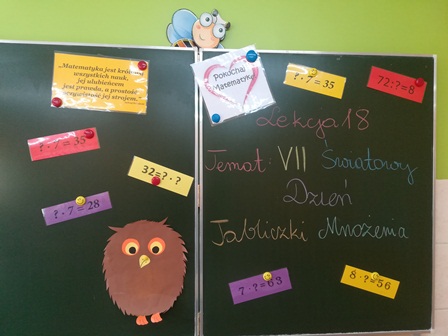 „Matematyka jest królową
wszystkich nauk,
jej ulubieńcem
jest prawda, a prostość
i oczywistość jej strojem."
Pokochaj
Matematykę
? · 7 = 35
72:?=8
? · 7 = 35
32=? · ?
? · 7 = 28
Lekcja 18
Temat: VII Światowy
Dzień
Tabliczki Mnożenia
7 · ?=63
8 · ?=56